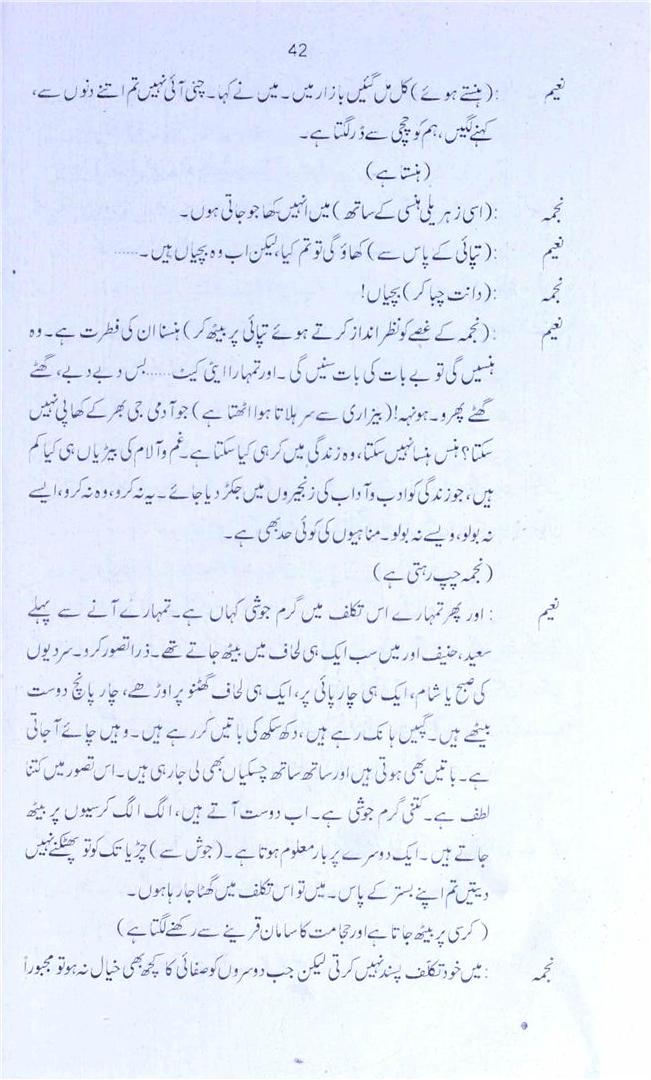 42
نعیم : (ہنستے ہوئے) کل مل گئیں بازار میں۔ میں نے کہا۔ چنی آئی نہیں تم اتنے دنوں سے،
کہنے لگیں، ہم کو چچی سے ڈر لگتا ہے۔
(ہنستا ہے)
نجمہ : (اسی زہریلی ہنسی کے ساتھ) میں انہیں کھا جو جاتی ہوں۔
نعیم : (تپائی کے پاس سے) کھاؤ گی تو تم کیا، لیکن اب وہ بچیاں ہیں۔......
نجمہ : (دانت چبا کر) بچیاں!
نعیم : (نجمہ کے غصے کو نظر انداز کرتے ہوئے تپائی پر بیٹھ کر) ہنسنا ان کی فطرت ہے۔ وہ
ہنسیں گی تو بے بات کی بات سنیں گی۔ اور تمہارا ایٹی کیٹ...... بس دبے دبے، گھٹے
گھٹے پھرو۔ ہونہہ! (بیزاری سے سر ہلاتا ہوا اٹھتا ہے) جو آدمی جی بھر کے کھا پی نہیں
سکتا؟ ہنس ہنسا نہیں سکتا، وہ زندگی میں کر ہی کیا سکتا ہے۔ غم و آلام کی بیڑیاں ہی کیا کم
ہیں، جو زندگی کو ادب و آداب کی زنجیروں میں جکڑ دیا جائے۔ یہ نہ کرو، وہ نہ کرو، ایسے
نہ بولو، ویسے نہ بولو۔ مناہیوں کی کوئی حد بھی ہے۔
(نجمہ چپ رہتی ہے)
نعیم : اور پھر تمہارے اس تکلف میں گرم جوشی کہاں ہے۔ تمہارے آنے سے پہلے
سعید، حنیف اور میں سب ایک ہی لحاف میں بیٹھ جاتے تھے۔ ذرا تصور کرو۔ سردیوں
کی صبح یا شام، ایک ہی چارپائی پر، ایک ہی لحاف گھٹنو پر اوڑھے، چار پانچ دوست
بیٹھے ہیں۔ گپیں ہانک رہے ہیں، دکھ سکھ کی باتیں کر رہے ہیں۔ وہیں چائے آ جاتی
ہے۔ باتیں بھی ہوتی ہیں اور ساتھ ساتھ چسکیاں بھی لی جا رہی ہیں۔ اس تصور میں کتنا
لطف ہے۔ کتنی گرم جوشی ہے۔ اب دوست آتے ہیں، الگ الگ کرسیوں پر بیٹھ
جاتے ہیں۔ ایک دوسرے پر بار معلوم ہوتا ہے۔ (جوش سے) چڑیا تک کو تو پھٹکنے نہیں
دیتیں تم اپنے بستر کے پاس۔ میں تو اس تکلف میں گھٹا جا رہا ہوں۔
(کرسی پر بیٹھ جاتا ہے اور حجامت کا سامان قرینے سے رکھنے لگتا ہے)
نجمہ : میں خود تکلف پسند نہیں کرتی لیکن جب دوسروں کو صفائی کا کچھ بھی خیال نہ ہو تو مجبوراً